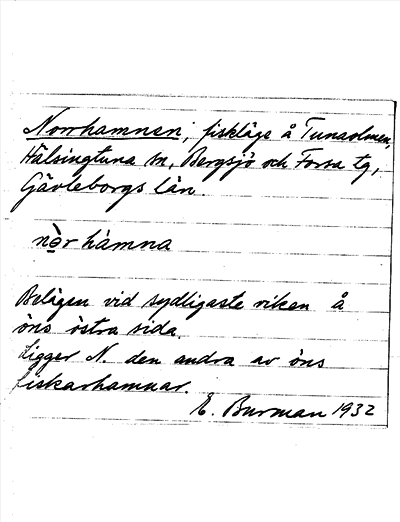 Norrhamnen, fiskläge å Tunaolmen,
Hälsingtuna sn, Bergsjö och Forsa tg,
Gävleborgs län.
nò̱r hámna
Belägen vid sydligaste viken å
öns östra sida.
Ligger N. den andra av öns
fiskarhamnar.
E. Burman 1932